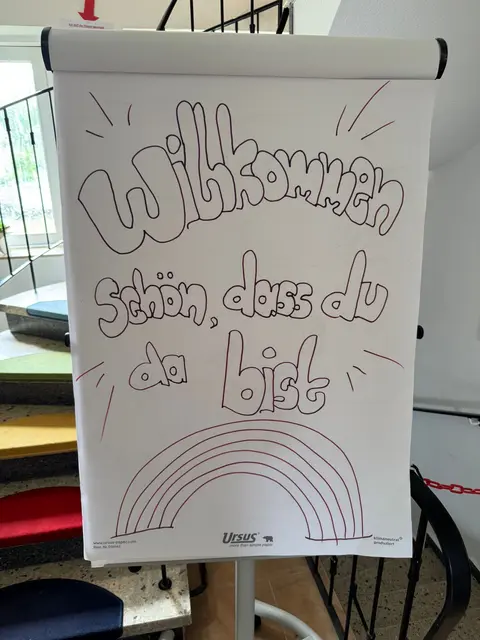 Willkommen
schön, dass du
da bist
Ursus